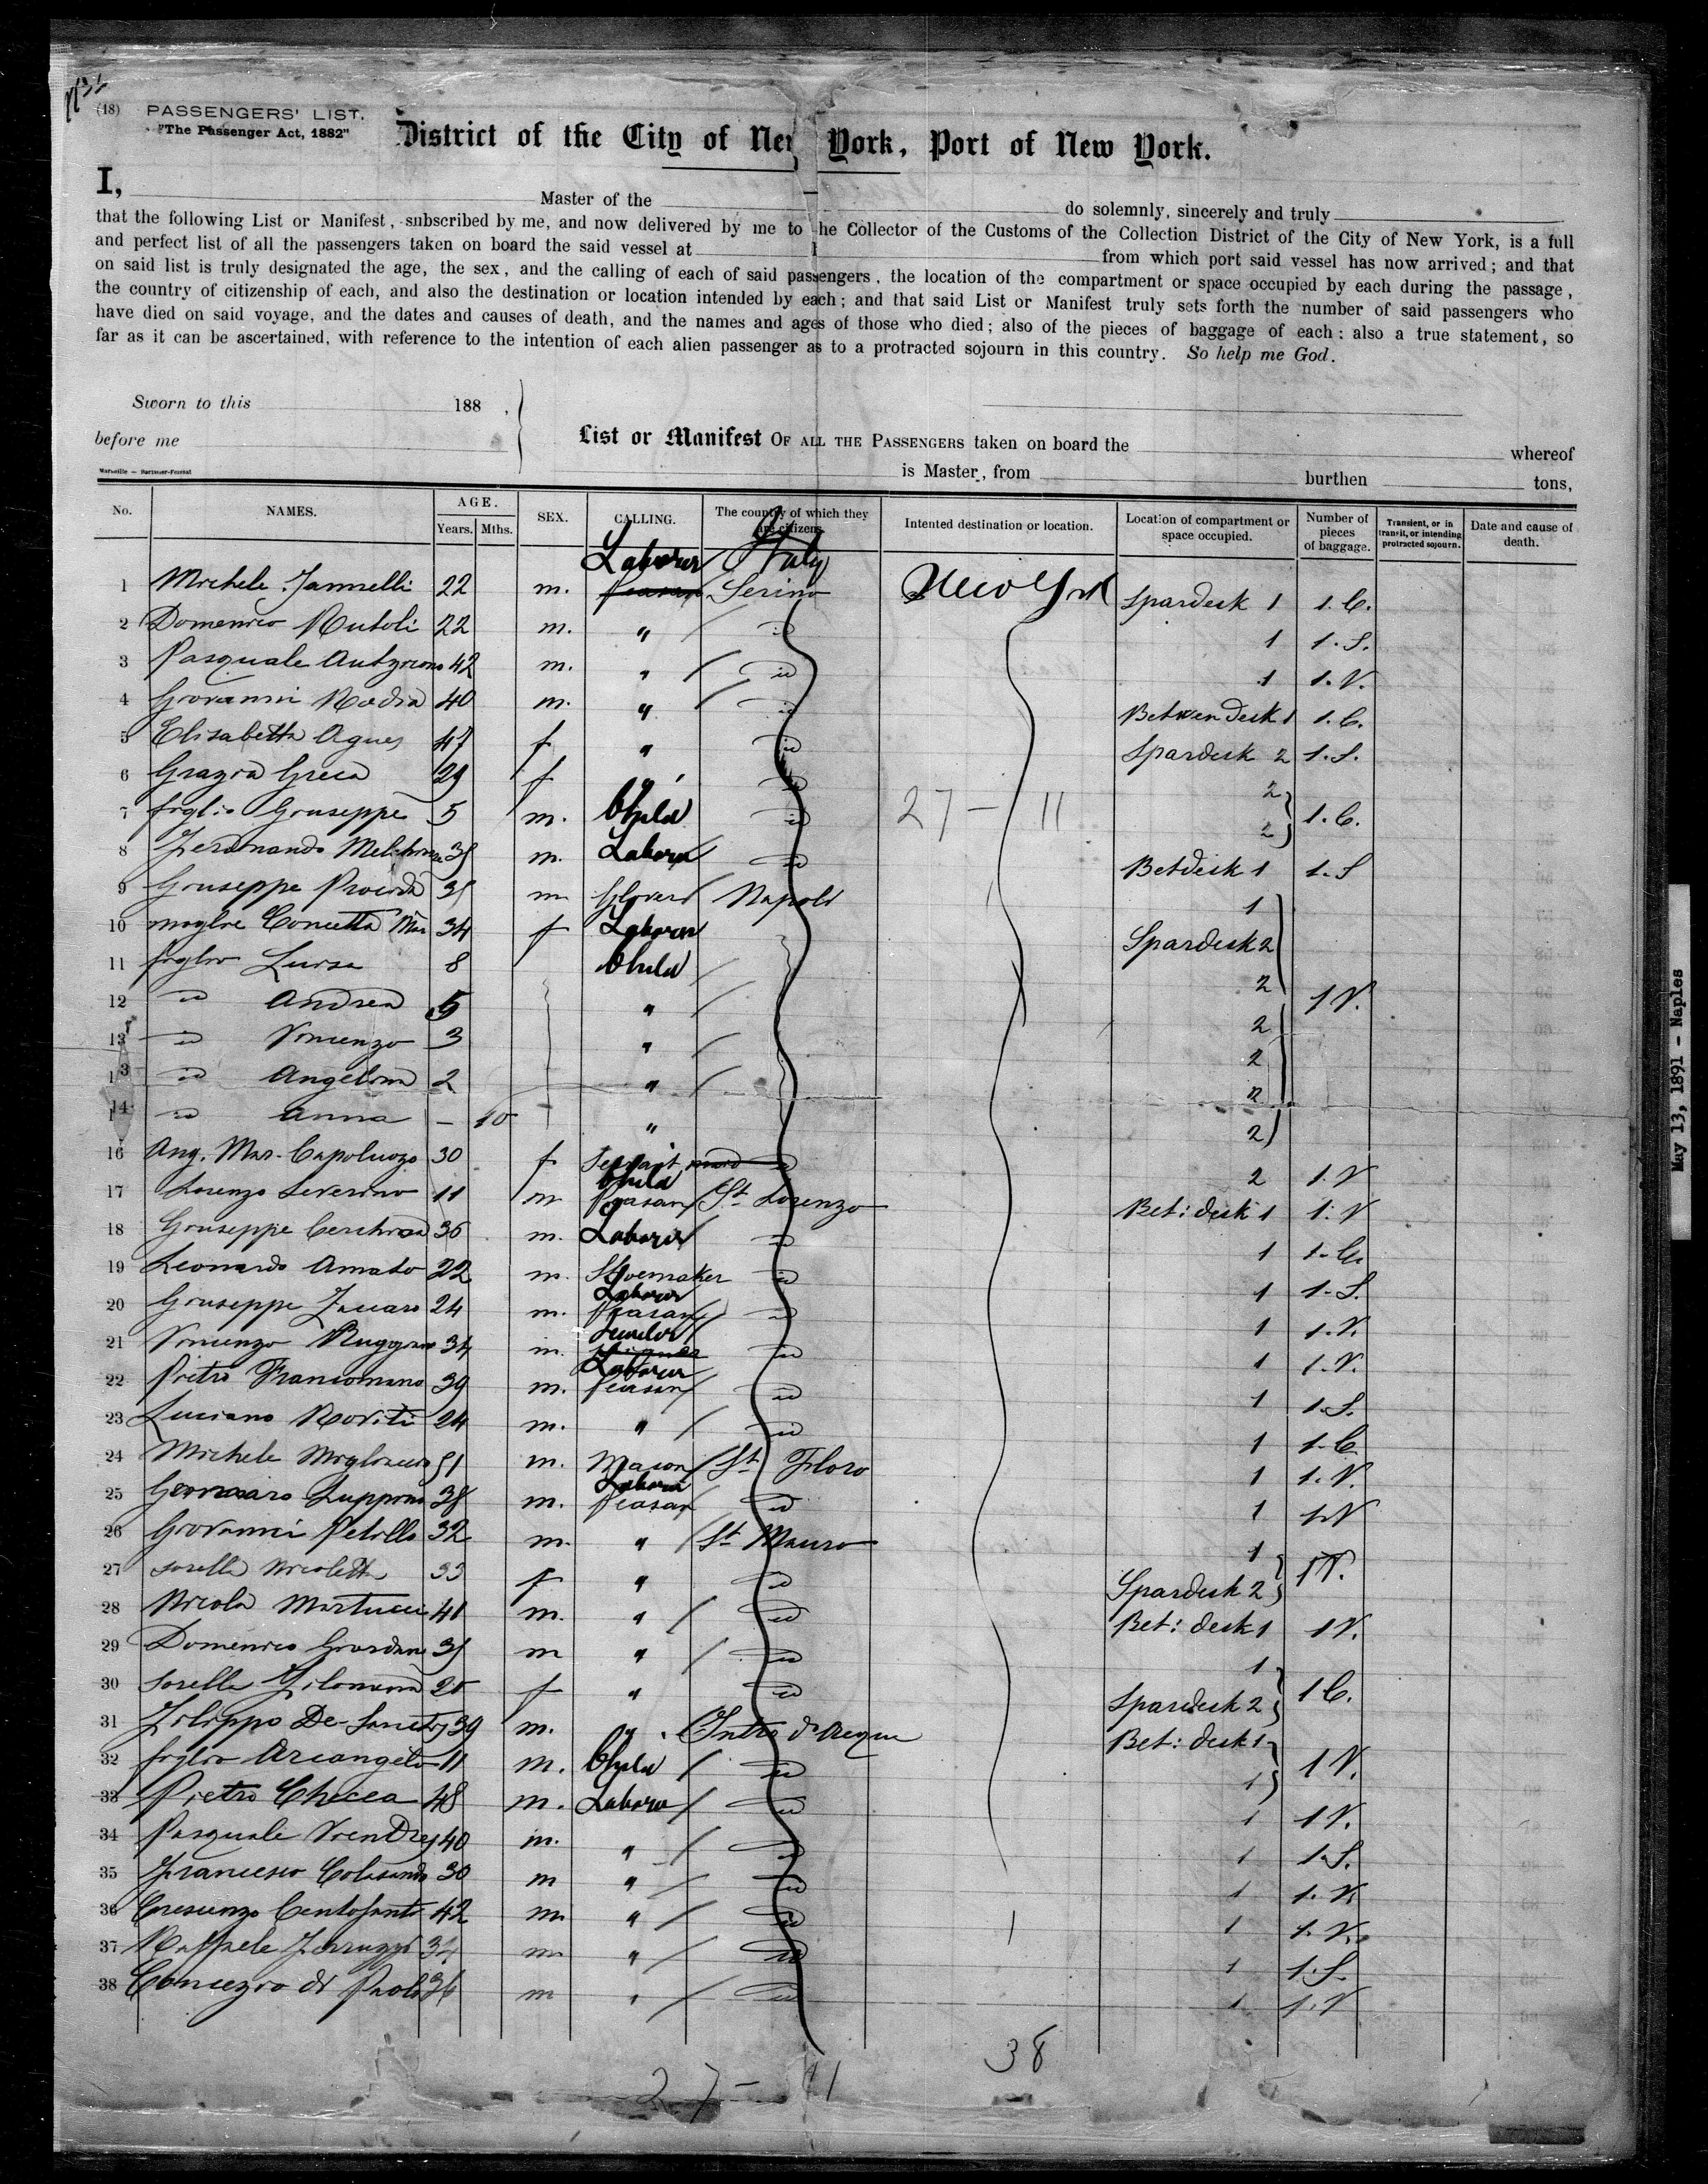 No. 31
(18) PASSENGERS' LIST.
"The Passenger Act, 1882"
District of the City of New York, Port of New York.
I, Master of the do solemnly, sincerely and truly
that the following List or Manifest, subscribed by me, and now delivered by me to the Collector of the Customs of the Collection District of the City of New York, is a full
and perfect list of all the passengers taken on board the said vessel at from which port said vessel has now arrived; and that
on said list is truly designated the age, the sex, and the calling of each of said passengers, the location of the compartment or space occupied by each during the passage,
the country of citizenship of each, and also the destination or location intended by each; and that said List or Manifest truly sets forth the number of said passengers who
have died on said voyage, and the dates and causes of death, and the names and ages of those who died; also of the pieces of baggage of each; also a true statement, so
far as it can be ascertained, with reference to the intention of each alien passenger as to a protracted sojourn in this country. So help me God.
Sworn to this 188 ,
before me
List or Manifest OF ALL THE PASSENGERS taken on board the whereof
is Master, from burthen tons,
Marseille —
No. NAMES. AGE. Years. Mths. SEX. CALLING. The country of which they are citizens. Intented destination or location. Location of compartment or space occupied. Number of pieces of baggage. Transient, or in transit, or intending protracted sojourn. Date and cause of death.
Laborer Italy
1 Michele Jannelli 22 m. Peasan Serino New York Spardeck 1 1.C.
2 Domenico Rutoli 22 m. " id 1 1.S.
3 Pasquale 42 m. " id 1 1.V.
4 Giovanni Rodia 40 m. " id Between deck 1 1.C.
5 Elisabetta Agnes 47 f " id Spardeck 2 1.S.
6 Grazia Greca 29 f " id 2
7 figlio Giuseppe 5 m. Child id 2 1.C.
27 — 11
8 Ferdinando 35 m. Laborer id Betdeck 1 1.S
9 Giuseppe Procida 35 m Napoli 1
10 moglie Concetta Mar 34 f Laborer Spardeck 2
11 figlio Luisa 8 Child 2
12 id Andrea 5 " 2 1V.
13 id Vincenzo 3 " 2
13 id Angelina 2 " 2
14 id Anna — 10 " 2
16 Ang. Mar. Capoluogo 30 f Servant id 2 1.V
Child
17 Lorenzo Severino 11 m Peasan St Lorenzo Bet: deck 1 1.V
18 Giuseppe 36 m. Laborer id 1 1.C.
19 Leonardo Amato 22 m. Shoemaker id 1 1.S.
Laborer
20 Giuseppe Zaccaro 24 m. Peasan id 1 1.V.
21 Vincenzo 34 m. id 1 1.V.
Laborer
22 Pietro Francomano 39 m. Peasan id 1 1.S.
23 Luciano Roviti 24 m. " id 1 1.C.
24 Michele 51 m. Mason St Floro 1 1.V.
Laborer
25 Gennaro Luppino 38 m. Peasan id 1 1V
26 Giovanni Petrillo 32 m. " St Mauro 1
27 sorella Nicoletta 33 f " id Spardeck 2 1V.
28 Nicola Martucci 41 m. " id Bet: deck 1 1V.
29 Domenico Giordan 35 m " id 1
30 sorella Filomena 20 f " id Spardeck 2 1C.
31 Filippo De Sanctis 39 m. " Intro d'Acqua Bet: deck 1
32 figlio Arcangelo 11 m. Child id 1 1V.
33 Pietro Checca 48 m. Laborer id 1 1V.
34 Pasquale 40 m. " id 1 1.S.
35 Francesco Colasando 30 m " id 1 1.V.
36 Crescenzo Centofanti 42 m. " id 1 1.V.
37 Raffaele 34 m. " id 1 1.S.
38 Concezio di Paolo 36 m " id 1 1.V
38
27 — 11
May 13, 1891 - Naples